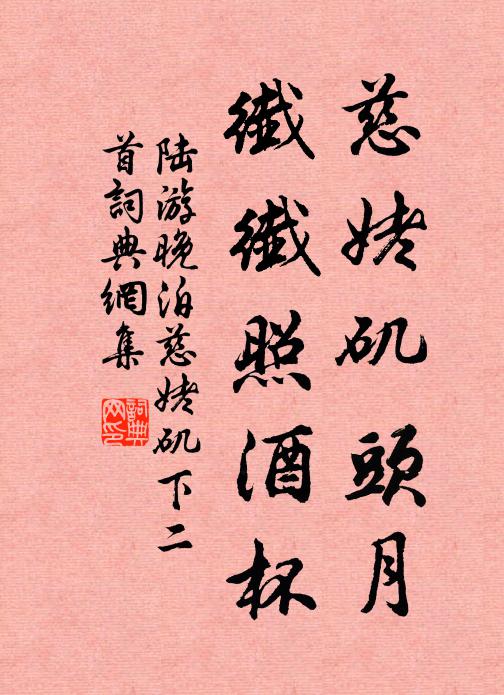 慈姥矶頭月
纖纖照酒杯
陆游晚泊慈姥矶下二
首詞典網集
詞典
网印